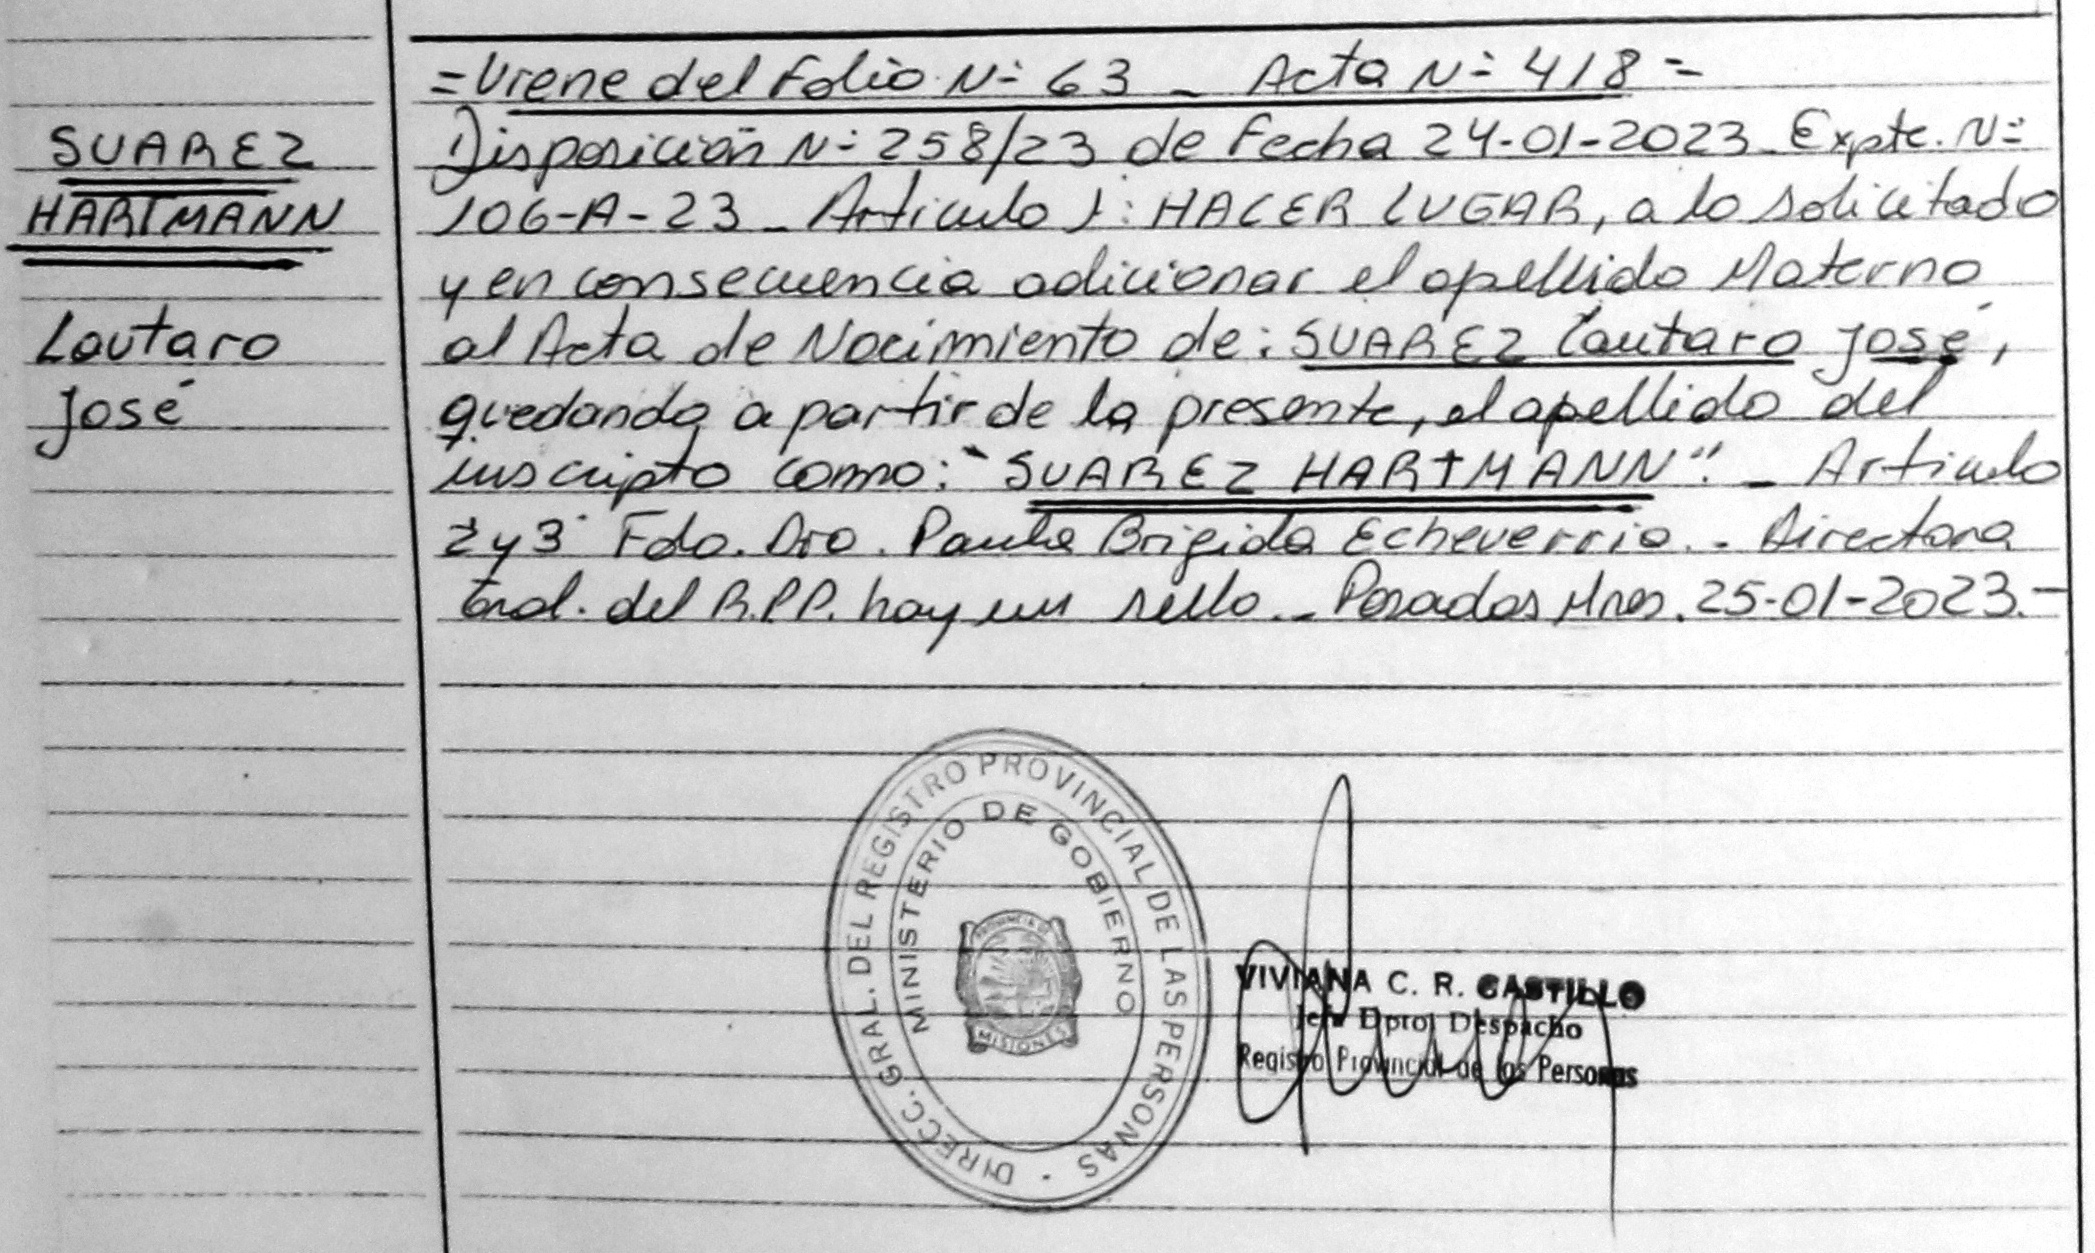 SUAREZ
HARTMANN
Lautaro
José
=Viene del Folio N= 63 - Acta N= 418=
Disposición N= 258/23 de Fecha 24-01-2023. Expte. N=
106-A-23 - Articulo 1: HACER LUGAR, a lo solicitado
y en consecuencia adicionar el apellido Materno
al Acta de Nacimiento de: SUAREZ Lautaro José,
quedando a partir de la presente, el apellido del
inscripto como: "SUAREZ HARTMANN". - Articulo
2 y 3 Fdo. Dra. Paula Brigida Echeverria. - Directora
Gral. del R.P.P. hay un sello. - Posadas Mnes. 25-01-2023.-
DIRECC. GRAL. DEL REGISTRO PROVINCIAL DE LAS PERSONAS -
MINISTERIO DE GOBIERNO
PROVINCIA DE
MISIONES
VIVIANA C. R. CASTILLO
Jefa Dpto. Despacho
Registro Provincial de las Personas